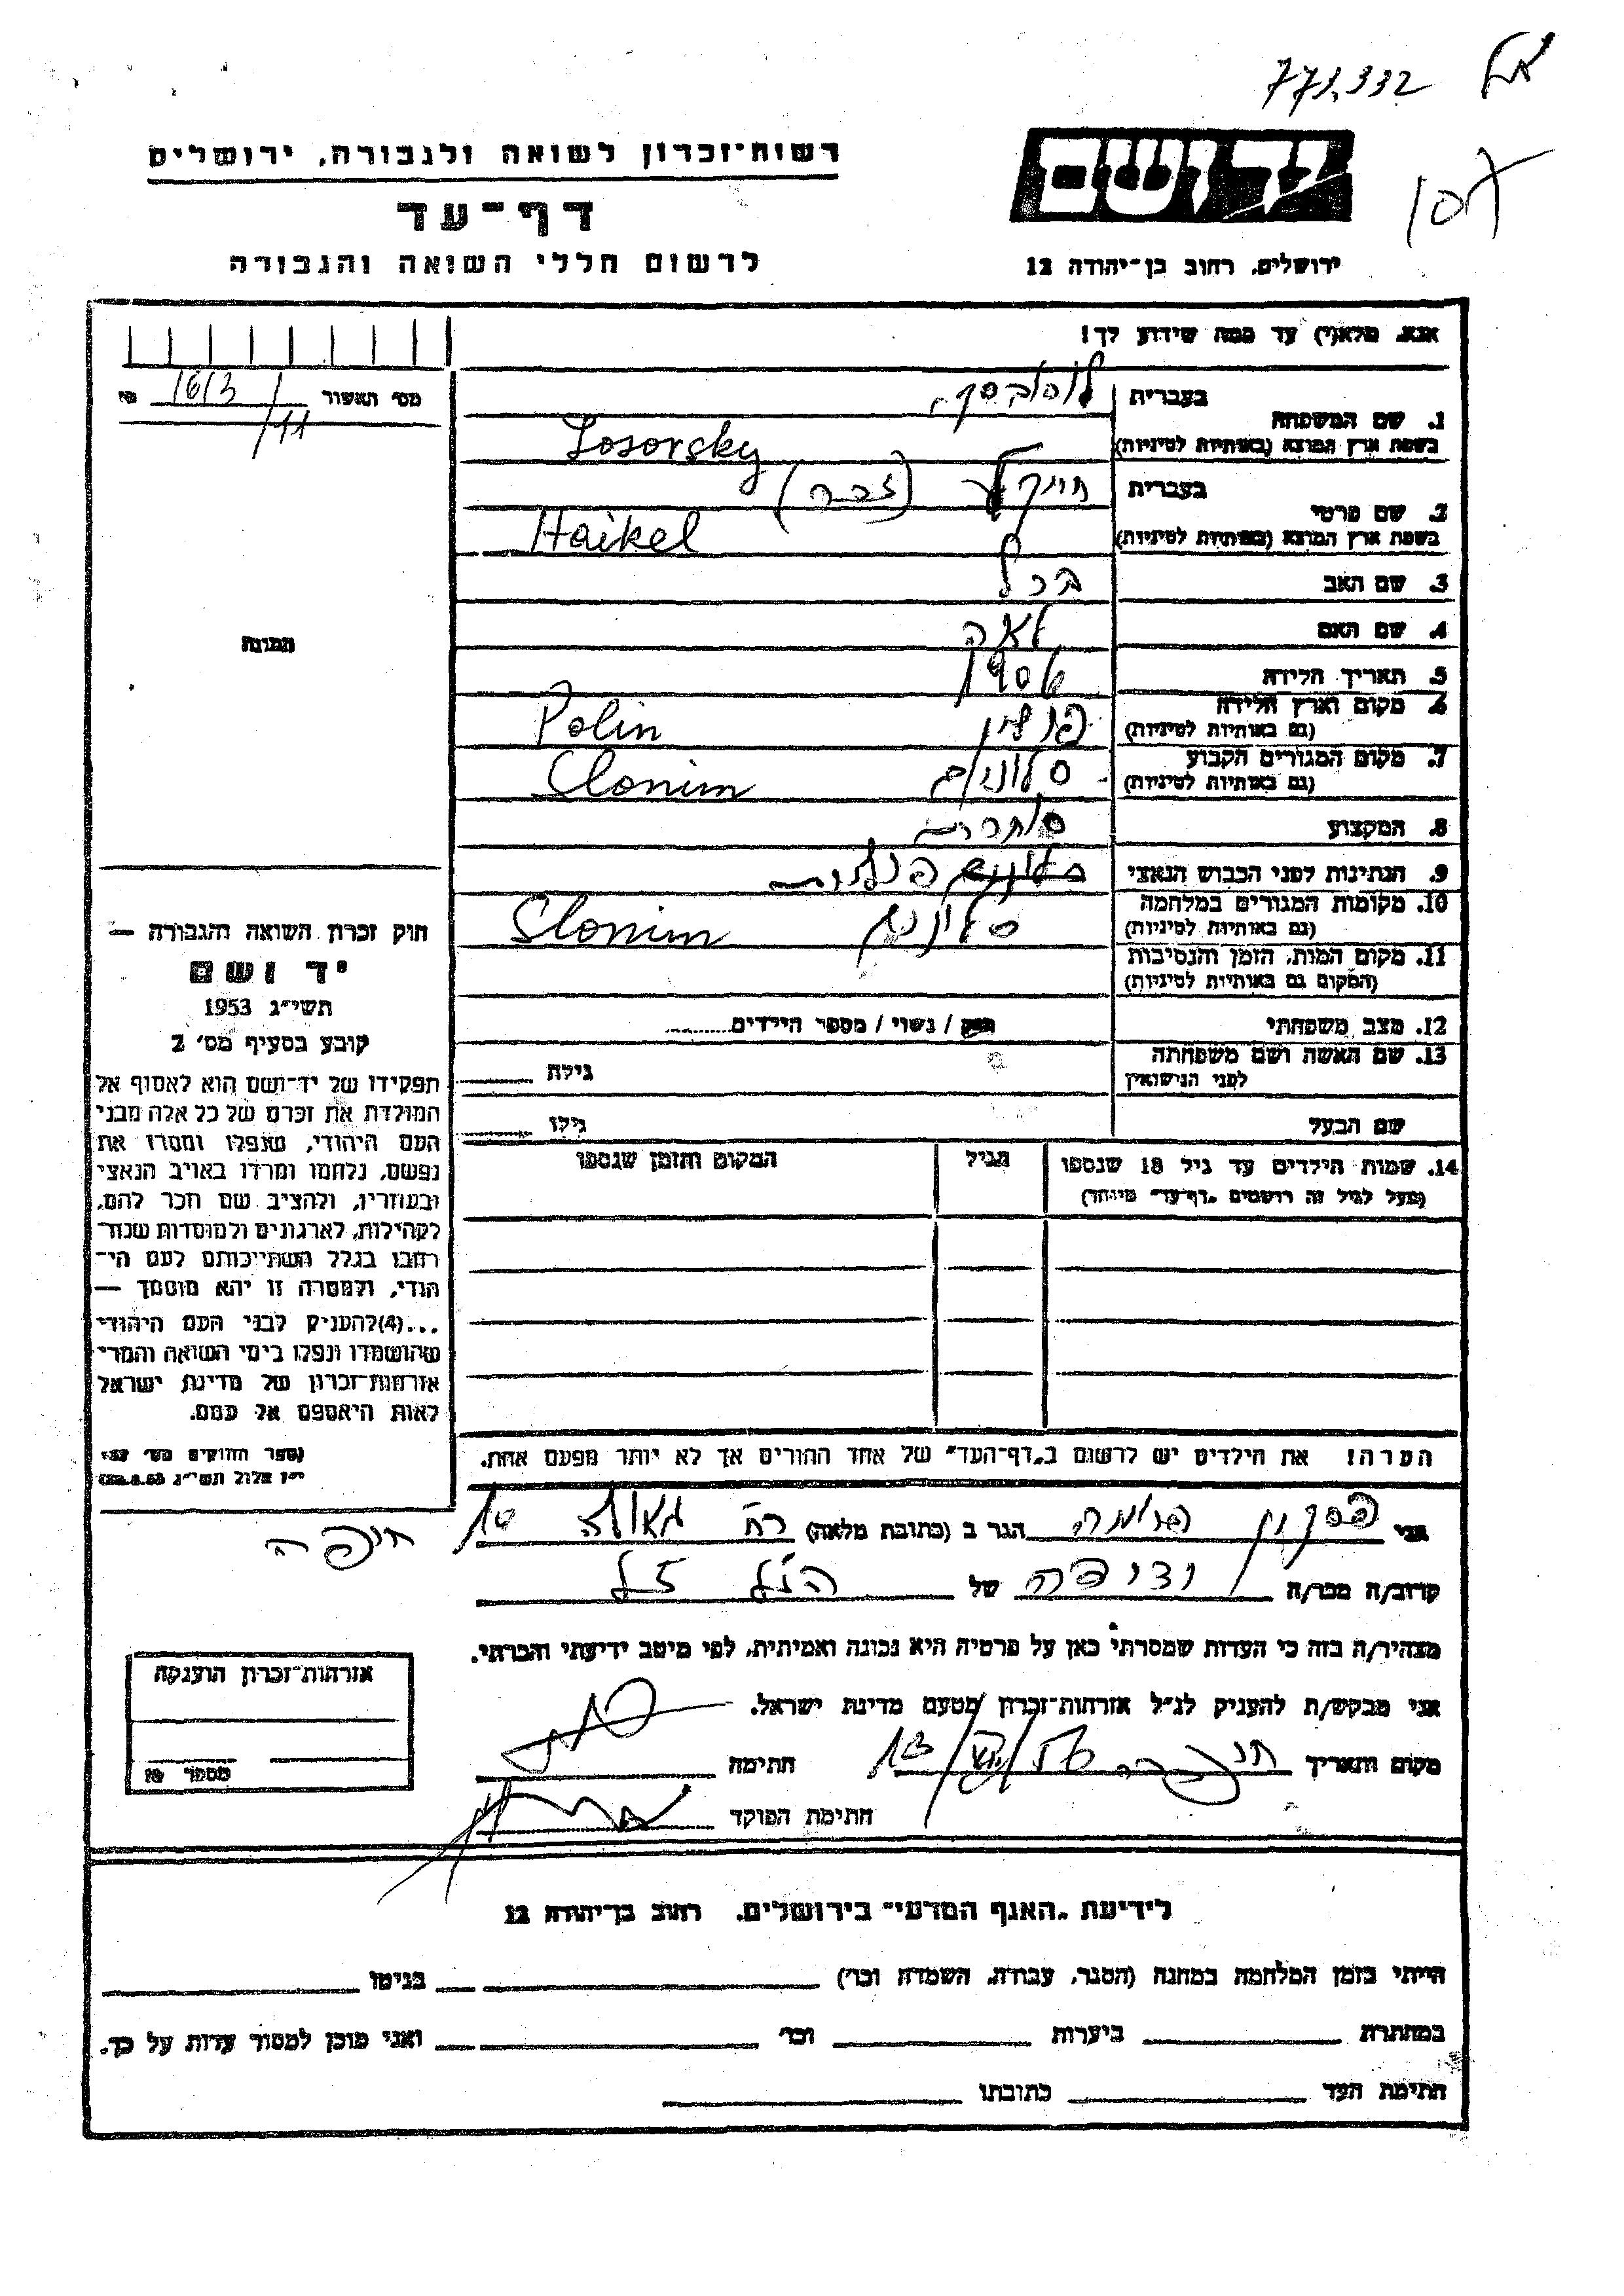 773,332
רשות-זכרון לשואה ולגבורה, ירושלים
יד ושם
דף-עד
לרשום חללי השואה והגבורה
ירושלים, רחוב בן-יהודה 12
אנא, מלא(י) עד כמה שידוע לך!
מס' האשור 1613/41 מס
1. שם המשפחה
בעברית
בשפת ארץ המוצא (באותיות לטיניות) Losovsky
2. שם פרטי
בעברית חייקל (זכר)
בשפת ארץ המוצא (באותיות לטיניות) Haikel
3. שם האב
4. שם האם לאה
5. תאריך הלידה 1906
6. מקום וארץ הלידה פולין Polin
(גם באותיות לטיניות)
7. מקום המגורים הקבוע סלונים Slonim
(גם באותיות לטיניות)
8. המקצוע
9. הנתינות לפני הכבוש הנאצי פולנית
10. מקומות המגורים במלחמה סלונים Slonim
(גם באותיות לטיניות)
11. מקום המות, הזמן והנסיבות
(המקום גם באותיות לטיניות)
12. מצב משפחתי רווק / נשוי / מספר הילדים
13. שם האשה ושם משפחתה
לפני הנישואין גילה
שם הבעל גילו
14. שמות הילדים עד גיל 18 שנספו הגיל המקום והזמן שנספו
(מעל לגיל זה רושמים "דף-עד" מיוחד)
תמונה
חוק זכרון השואה והגבורה —
יד ושם
תשי"ג 1953
קובע בסעיף מס' 2
תפקידו של יד-ושם הוא לאסוף אל
המולדת את זכרם של כל אלה מבני
העם היהודי, שנפלו ומסרו את
נפשם, נלחמו ומרדו באויב הנאצי
ובעוזריו, ולהציב שם וזכר להם,
לקהילות, לארגונים ולמוסדות שנח-
רבו בגלל השתייכותם לעם הי-
הודי, ולמטרה זו יהא מוסמך —
...(4) להעניק לבני העם היהודי
שהושמדו ונפלו בימי השואה והמרי
אזרחות-זכרון של מדינת ישראל
לאות היאספם אל עמם.
הערה! את הילדים יש לרשום ב"דף-העד" של אחד ההורים אך לא יותר מפעם אחת.
אני הגר ב (כתובת מלאה) רח גאולה 10
חיפה
קרוב/ה מכר/ה ידידה של הנ"ל ז"ל
מצהיר/ה בזה כי העדות שמסרתי כאן על פרטיה היא נכונה ואמיתית, לפי מיטב ידיעתי והכרתי.
אני מבקש/ת להעניק לנ"ל אזרחות-זכרון מטעם מדינת ישראל.
מקום ותאריך חיפה חתימה
חתימת הפוקד
אזרחות-זכרון הוענקה
מספר
לידיעת "האגף המדעי" בירושלים, רחוב בן-יהודה 12
הייתי בזמן המלחמה במחנה (הסגר, עבודה, השמדה וכו') בגיטו
במחתרת ביערות וכו' ואני מוכן למסור עדות על כך.
חתימת העד כתובתו